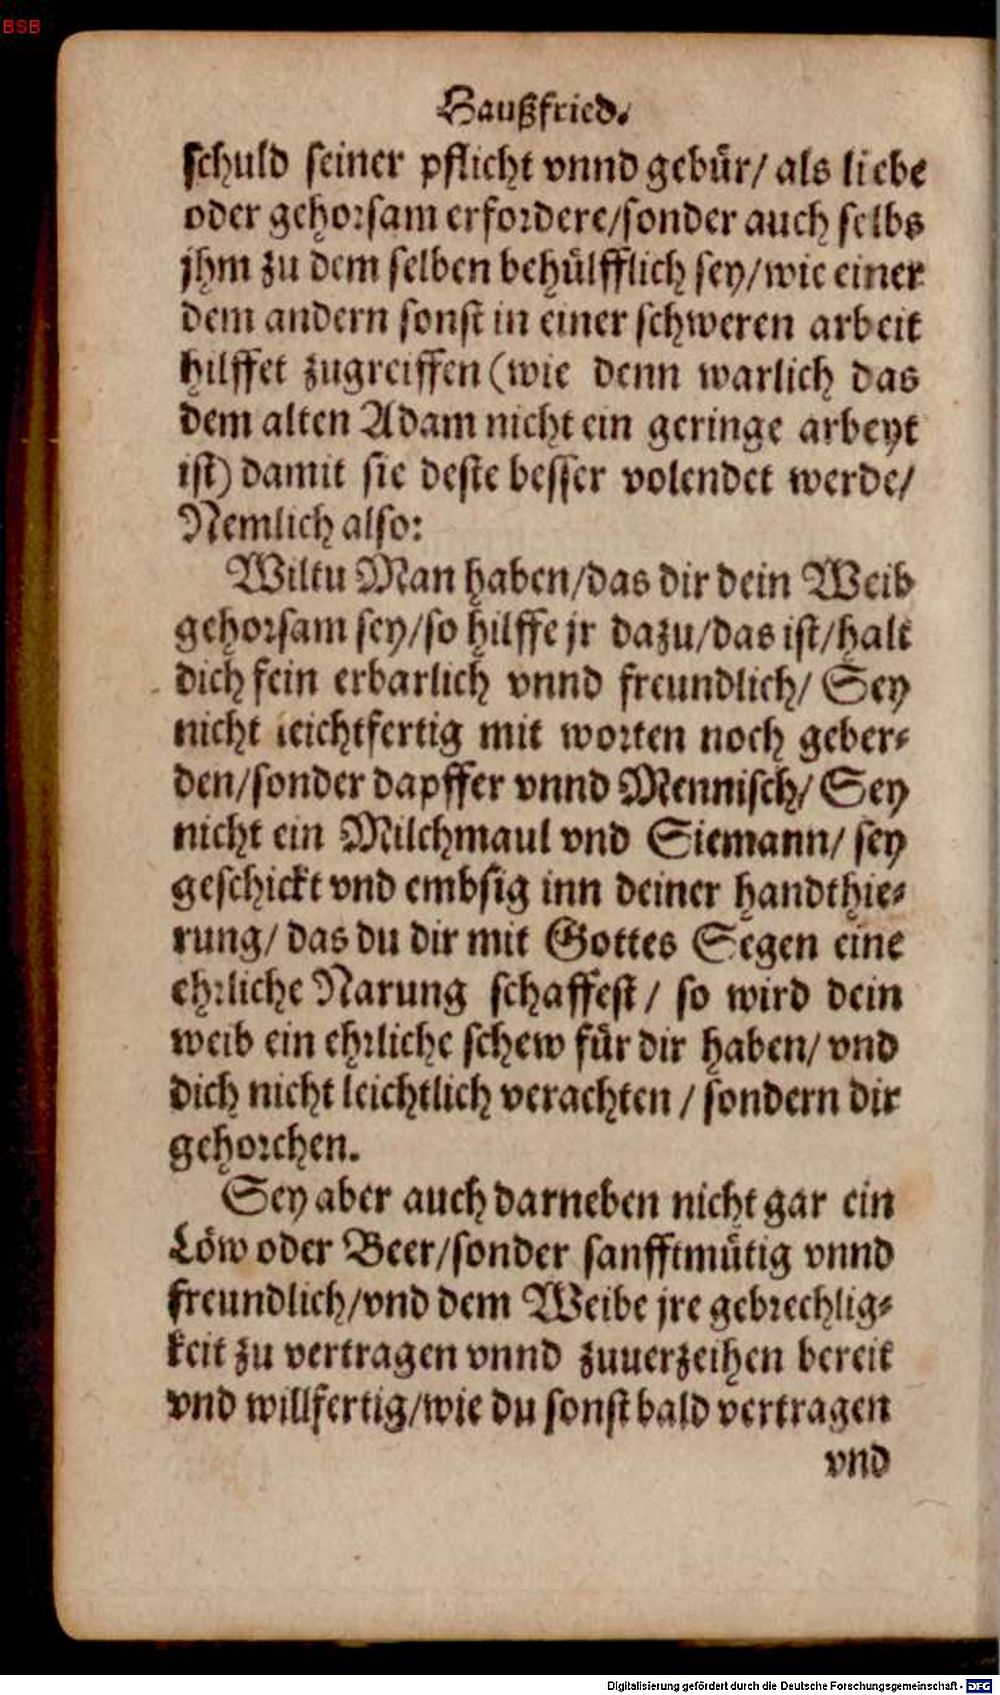 BSB
Haußfried.
schuld seiner pflicht vnnd gebür/ als liebe
oder gehorsam erfordere/sonder auch selbs
jhm zu dem selben behülfflich sey/wie einer
dem andern sonst in einer schweren arbeit
hilffet zugreiffen (wie denn warlich das
dem alten Adam nicht ein geringe arbeyt
ist) damit sie deste besser volendet werde/
Nemlich also:
Wiltu Man haben/das dir dein Weib
gehorsam sey/so hilffe jr dazu/das ist/halt
dich fein erbarlich vnnd freundlich/ Sey
nicht leichtfertig mit worten noch geber-
den/sonder dapffer vnnd Mennisch/ Sey
nicht ein Milchmaul vnd Siemann/ sey
geschickt vnd embsig inn deiner handthie-
rung/ das du dir mit Gottes Segen eine
ehrliche Narung schaffest/ so wird dein
weib ein ehrliche schew für dir haben/ vnd
dich nicht leichtlich verachten/ sondern dir
gehorchen.
Sey aber auch darneben nicht gar ein
Löw oder Beer/sonder sanfftmütig vnnd
freundlich/vnd dem Weibe jre gebrechlig-
keit zu vertragen vnnd zuuerzeihen bereit
vnd willfertig/wie du sonst bald vertragen
vnd
Digitalisierung gefördert durch die Deutsche Forschungsgemeinschaft - DFG